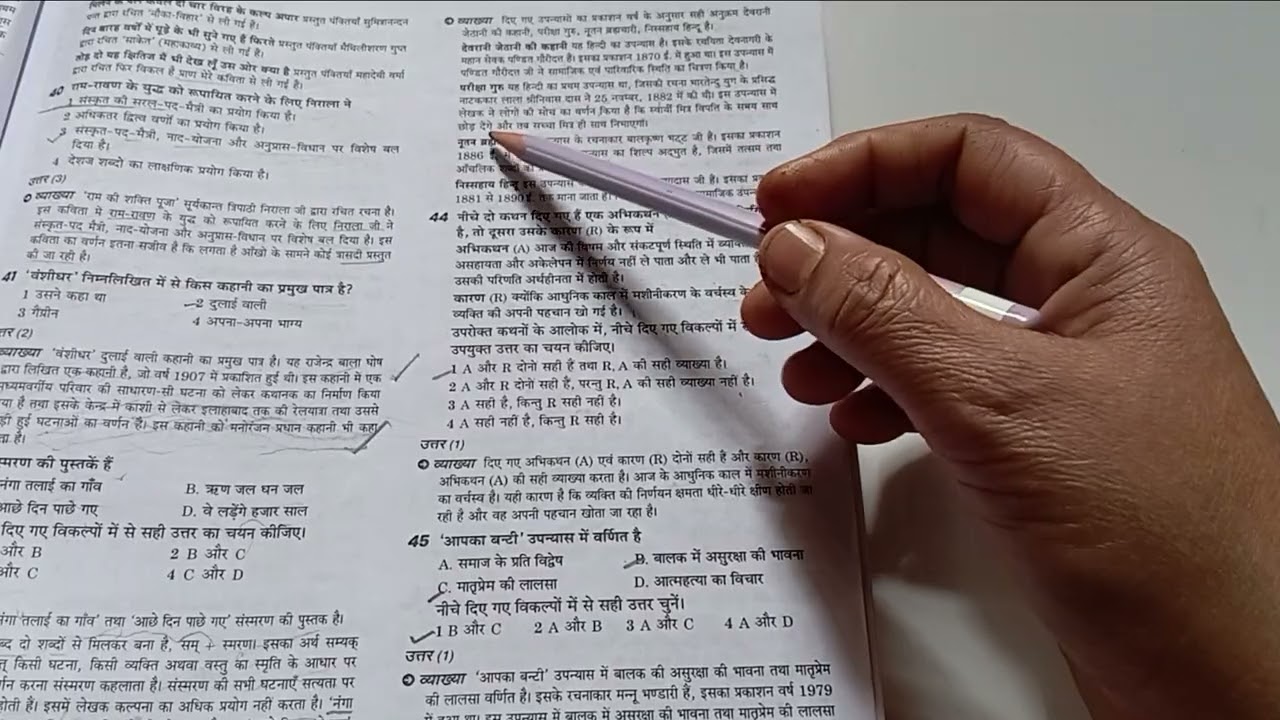 द्वारा रचित 'नौका-विहार' से ली गई है।
दिन बारह वर्षों में घूड़े के भी सुने गए हैं फिरते प्रस्तुत पंक्तियाँ मैथिलीशरण गुप्त
द्वारा रचित 'साकेत' (महाकाव्य) से ली गई है।
तोड़ दो यह क्षितिज में भी देख लूँ उस ओर क्या है प्रस्तुत पंक्तियाँ महादेवी वर्मा
द्वारा रचित फिर विकल है प्राण मेरे कविता से ली गई है।
40 राम-रावण के युद्ध को रूपायित करने के लिए निराला ने
1 संस्कृत की सरल-पद-मैत्री का प्रयोग किया है।
2 अधिकतर द्वित्व वर्णों का प्रयोग किया है।
3 संस्कृत-पद-मैत्री, नाद-योजना और अनुप्रास-विधान पर विशेष बल
दिया है।
4 देशज शब्दों का लाक्षणिक प्रयोग किया है।
उत्तर (3)
व्याख्या 'राम की शक्ति पूजा' सूर्यकान्त त्रिपाठी निराला जी द्वारा रचित रचना है।
इस कविता में राम-रावण के युद्ध को रूपायित करने के लिए निराला जी ने
संस्कृत-पद मैत्री, नाद-योजना और अनुप्रास-विधान पर विशेष बल दिया है। इस
कविता का वर्णन इतना सजीव है कि लगता है आँखों के सामने कोई त्रासदी प्रस्तुत
की जा रही है।
41 'वंशीधर' निम्नलिखित में से किस कहानी का प्रमुख पात्र है?
1 उसने कहा था 2 दुलाई वाली
3 गैंग्रीन 4 अपना-अपना भाग्य
त्तर (2)
व्याख्या 'वंशीधर' दुलाई वाली कहानी का प्रमुख पात्र है। यह राजेन्द्र बाला घोष
द्वारा लिखित एक कहानी है, जो वर्ष 1907 में प्रकाशित हुई थी। इस कहानी में एक
मध्यमवर्गीय परिवार की साधारण-सी घटना को लेकर कथानक का निर्माण किया
या है तथा इसके केन्द्र में काशी से लेकर इलाहाबाद तक की रेलयात्रा तथा उससे
ड़ी हुई घटनाओं का वर्णन है। इस कहानी को मनोरंजन प्रधान कहानी भी कहा
ता है।
स्मरण की पुस्तकें हैं
नंगा तलाई का गाँव B. ऋण जल धन जल
आछे दिन पाछे गए D. वे लड़ेंगे हजार साल
दिए गए विकल्पों में से सही उत्तर का चयन कीजिए।
और B 2 B और C
और C 4 C और D
नंगा तलाई का गाँव' तथा 'आछे दिन पाछे गए' संस्मरण की पुस्तक है।
ब्द दो शब्दों से मिलकर बना है, 'सम् + स्मरण। इसका अर्थ सम्यक्
किसी घटना, किसी व्यक्ति अथवा वस्तु का स्मृति के आधार पर
र्णन करना संस्मरण कहलाता है। संस्मरण की सभी घटनाएँ सत्यता पर
होती हैं। इसमें लेखक कल्पना का अधिक प्रयोग नहीं करता है। 'नंगा
व्याख्या दिए गए उपन्यासों का प्रकाशन वर्ष के अनुसार सही अनुक्रम देवरानी
जेठानी की कहानी, परीक्षा गुरु, नूतन ब्रह्मचारी, निस्सहाय हिन्दू है।
देवरानी जेठानी की कहानी यह हिन्दी का उपन्यास है। इसके रचयिता देवनागरी के
महान सेवक पण्डित गौरीदत्त है। इसका प्रकाशन 1870 ई. में हुआ था। इस उपन्यास में
पण्डित गौरीदत्त जी ने सामाजिक एवं पारिवारिक स्थिति का चित्रण किया है।
परीक्षा गुरु यह हिन्दी का प्रथम उपन्यास था, जिसकी रचना भारतेन्दु युग के प्रसिद्ध
नाटककार लाला श्रीनिवास दास ने 25 नवम्बर, 1882 में की थी। इस उपन्यास में
लेखक ने लोगों की सोच का वर्णन किया है कि स्वार्थी मित्र विपत्ति के समय साथ
छोड़ देंगे और तब सच्चा मित्र ही साथ निभाएगा।
नूतन के रचनाकार बालकृष्ण भट्ट जी है। इसका प्रकाशन
1886 का शिल्प अद्भुत है, जिसमें तत्सम तथा
आँचलिक
निस्सहाय हिन्दू इस उपन्यास जी है। इसका
1881 से 1890 ई. तक माना जाता है।
44 नीचे दो कथन दिए गए हैं एक अभिकथन
है, तो दूसरा उसके कारण (R) के रूप में
अभिकथन (A) आज की विषम और संकटपूर्ण स्थिति में
असहायता और अकेलेपन में निर्णय नहीं ले पाता और ले भी पाता
उसकी परिणति अर्थहीनता में होती है।
कारण (R) क्योंकि आधुनिक काल में मशीनीकरण के वर्चस्व के
व्यक्ति की अपनी पहचान खो गई है।
उपरोक्त कथनों के आलोक में, नीचे दिए गए विकल्पों में
उपयुक्त उत्तर का चयन कीजिए।
1 A और R दोनों सही हैं तथा R, A की सही व्याख्या है।
2 A और R दोनों सही हैं, परन्तु R, A की सही व्याख्या नहीं है।
3 A सही है, किन्तु R सही नहीं है।
4 A सही नहीं है, किन्तु R सही है।
उत्तर (1)
व्याख्या दिए गए अभिकथन (A) एवं कारण (R) दोनों सही हैं और कारण (R),
अभिकथन (A) की सही व्याख्या करता है। आज के आधुनिक काल में मशीनीकरण
का वर्चस्व है। यही कारण है कि व्यक्ति की निर्णयन क्षमता धीरे-धीरे क्षीण होती जा
रही है और वह अपनी पहचान खोता जा रहा है।
45 'आपका बन्टी' उपन्यास में वर्णित है
A. समाज के प्रति विद्वेष B. बालक में असुरक्षा की भावना
C. मातृप्रेम की लालसा D. आत्महत्या का विचार
नीचे दिए गए विकल्पों में से सही उत्तर चुनें।
1 B और C 2 A और B 3 A और C 4 A और D
उत्तर (1)
व्याख्या 'आपका बन्टी' उपन्यास में बालक की असुरक्षा की भावना तथा मातृप्रेम
की लालसा वर्णित है। इसके रचनाकार मन्नू भण्डारी हैं, इसका प्रकाशन वर्ष 1979
में हुआ था। इस उपन्यास में बालक में असुरक्षा की भावना तथा मातृप्रेम की लालसा